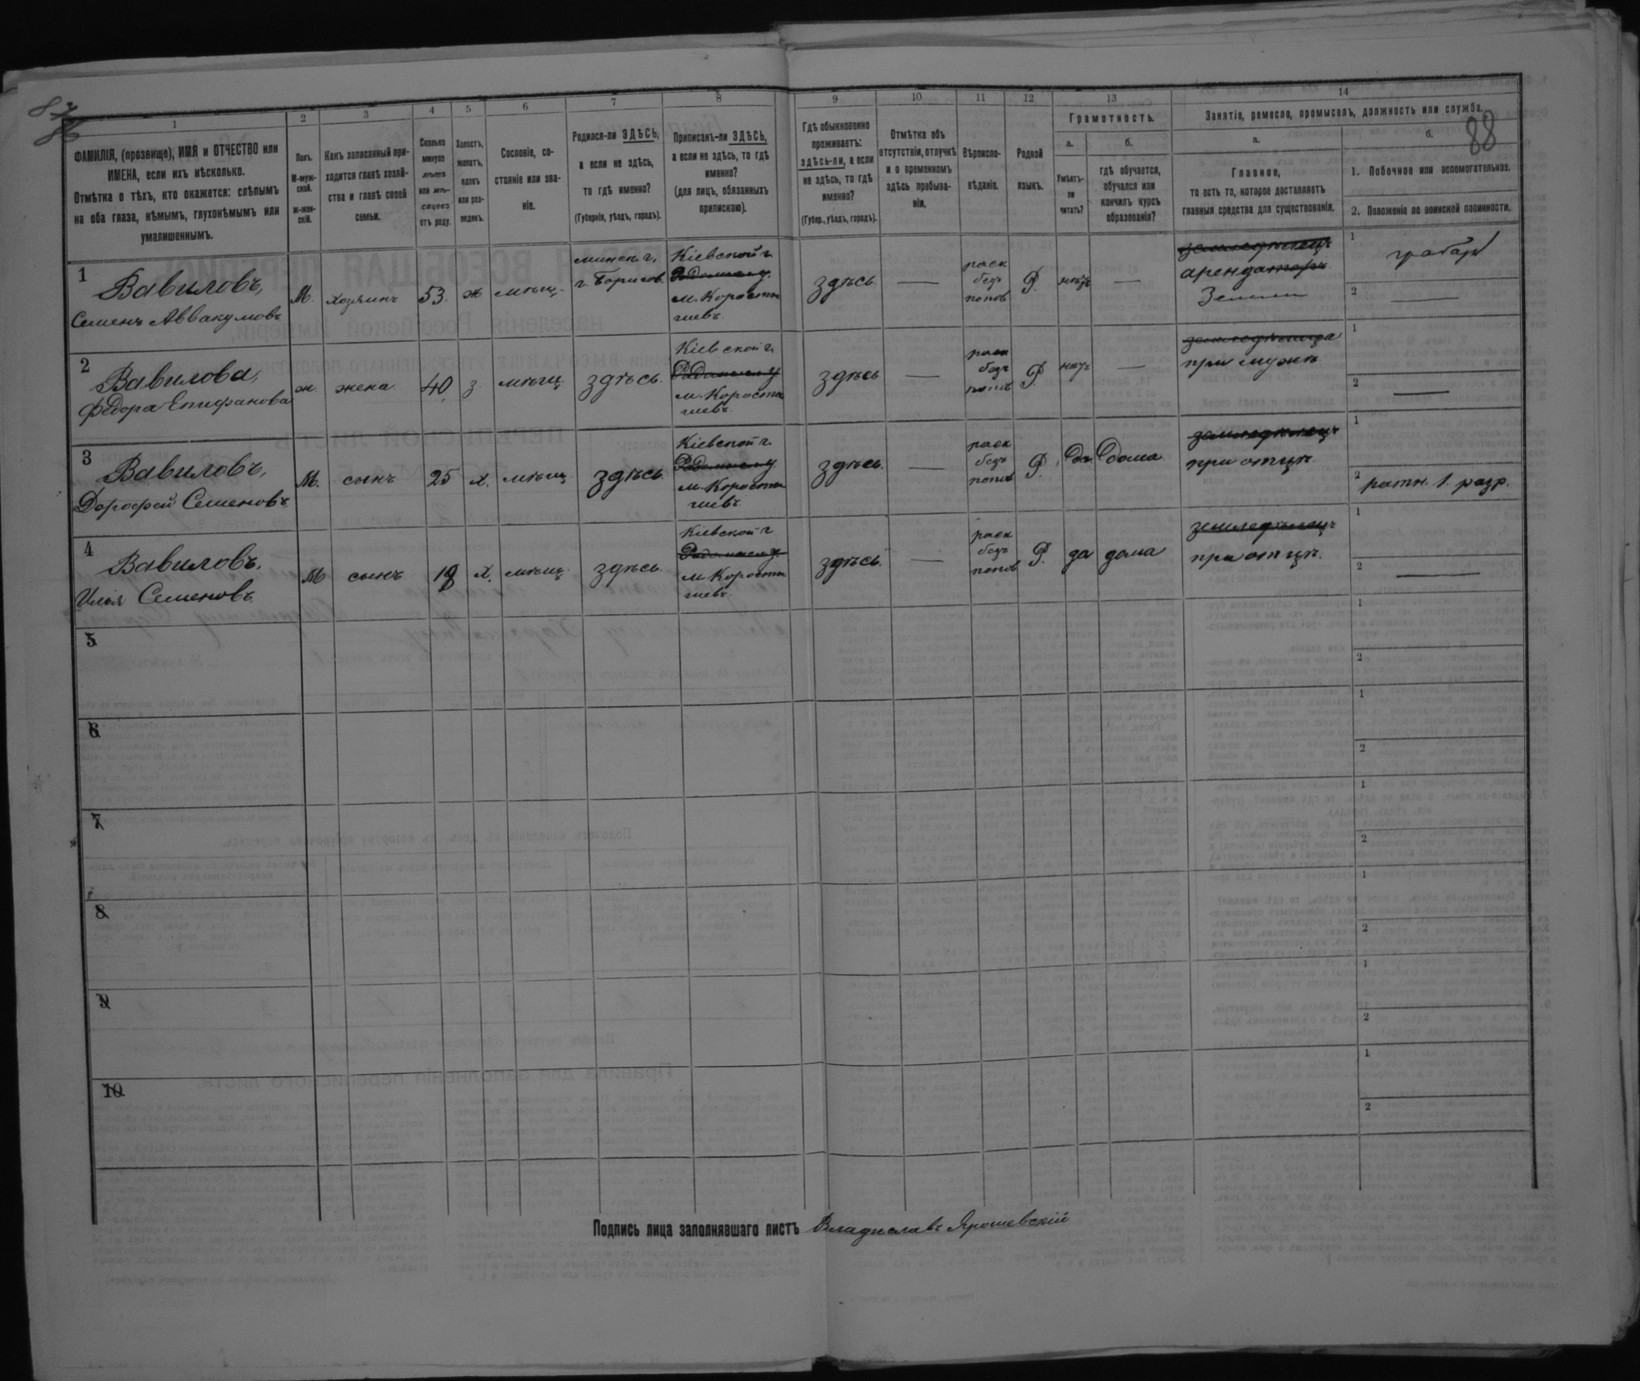 87
88
1 2 3 4 5 6 7 8 9 10 11 12 13 14
ФАМИЛІЯ, (прозвище), ИМЯ и ОТЧЕСТВО или
ИМЕНА, если ихъ нѣсколько.
Отмѣтка о тѣхъ, кто окажется: слѣпымъ
на оба глаза, нѣмымъ, глухонѣмымъ или
умалишеннымъ.
Полъ.
М-муж-
ской.
Ж-жен-
скій.
Какъ записанный при-
ходится главѣ хозяй-
ства и главѣ своей
семьи.
Сколько
минуло
лѣтъ
или мѣ-
сяцевъ
отъ роду.
Холостъ,
женатъ,
вдовъ
или раз-
веденъ.
Сословіе, со-
стояніе или зва-
ніе.
Родился-ли ЗДѢСЬ,
а если не здѣсь,
то гдѣ именно?
(Губернія, уѣздъ, городъ).
Приписанъ-ли ЗДѢСЬ,
а если не здѣсь, то гдѣ
именно?
(для лицъ, обязанныхъ
припискою).
Гдѣ обыкновенно
проживаетъ:
здѣсь-ли, а если
не здѣсь, то гдѣ
именно?
(Губер., уѣздъ, городъ).
Отмѣтка объ
отсутствіи, отлучкѣ
и о временномъ
здѣсь пребыва-
ніи.
Вѣроиспо-
вѣданіе.
Родной
языкъ.
Грамотность.
а.
Умѣетъ-
ли
читать?
б.
гдѣ обучается,
обучался или
кончилъ курсъ
образованія?
Занятіе, ремесло, промыселъ, должность или служба.
а.
Главное,
то есть то, которое доставляетъ
главныя средства для существованія.
б.
1. Побочное или вспомогательное.
2. Положеніе по воинской повинности.
1
Вавиловъ,
Семенъ Аввакумовъ
М.
хозяинъ
53.
ж
мѣщ.
минск. г.
г. Борисов.
Кіевской г.
Радомысл. у.
м. Корости
шевъ.
здѣсь
раск
безъ
попов
Р.
нѣтъ
земледѣлецъ
арендаторъ
Земли
1
грабарь
2
2
Вавилова,
Федора Епифанова
ж.
жена
40
з.
мѣщ.
здѣсь.
Кіевской г.
Радомысл. у
м. Корости
шевъ.
здѣсь
раск
безъ
попов
Р.
нѣтъ
при мужѣ
1
2
3
Вавиловъ,
Дорофей Семеновъ
М.
сынъ
25
х.
мѣщ.
здѣсь.
Кіевской г.
Радомысл. у
м. Корости
шевъ.
здѣсь.
раск
безъ
попов
Р.
да
дома
земледѣлецъ
при отцѣ.
1
2 ратн. 1. разр.
4
Вавиловъ,
Илья Семеновъ
М
сынъ
18
х.
мѣщ.
здѣсь.
Кіевской г
Радомысл. у
м. Корости
шевъ.
здѣсь.
раск
безъ
попов
Р.
да
дома
земледѣлецъ
при отцѣ.
1
2
5
1
2
6
1
2
7
1
2
8
1
2
9
1
2
10
1
2
Подпись лица заполнявшаго листъ Владиславъ Ярошевскій